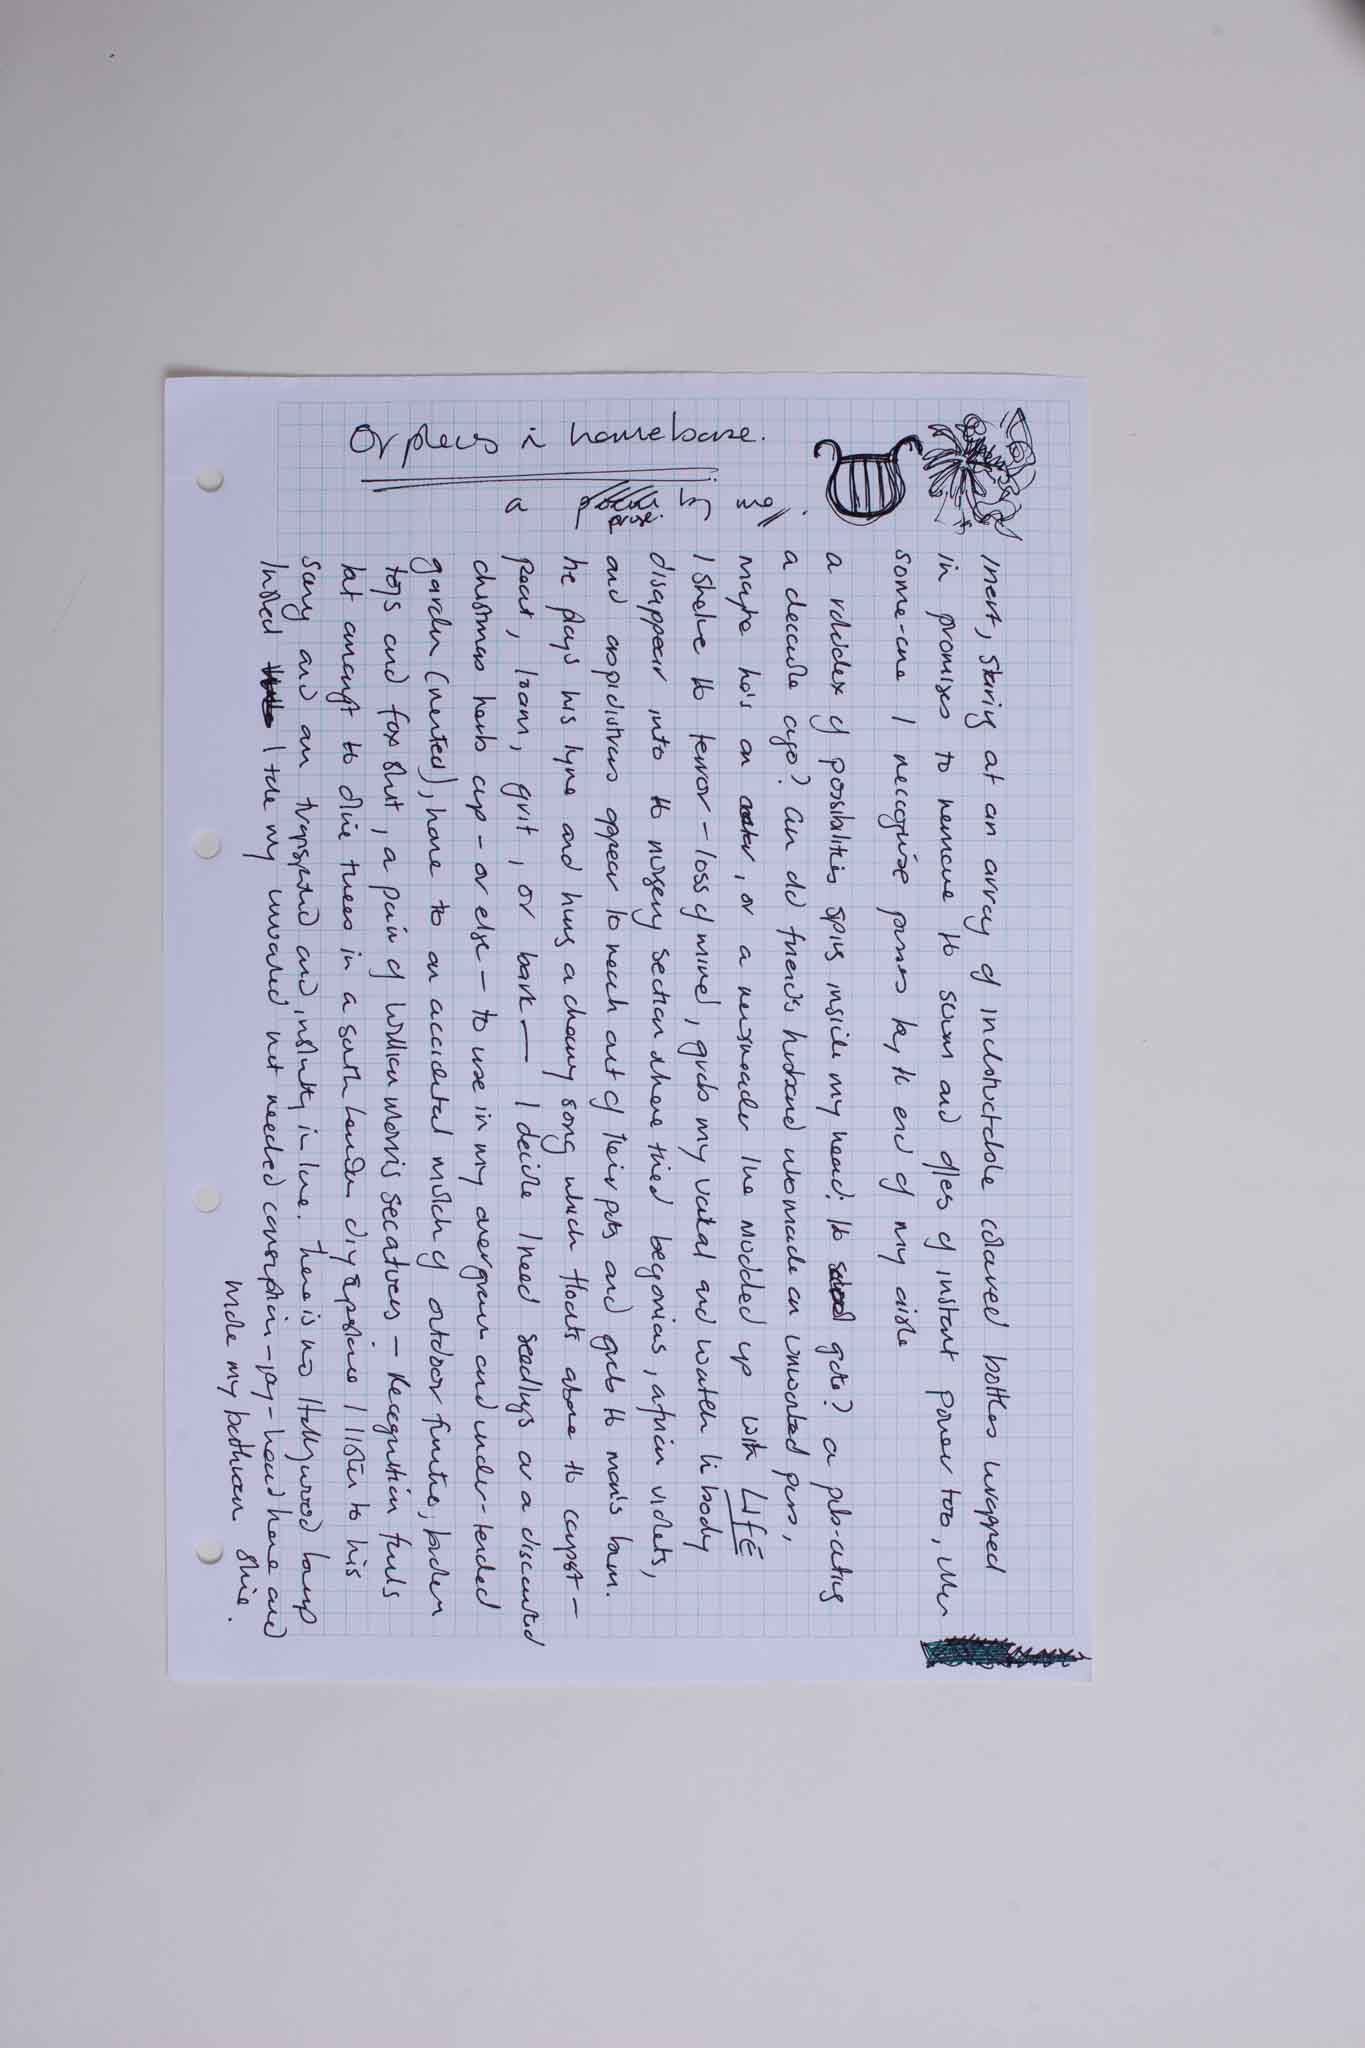 Orpheus in homebase.
a prose by me
Inert, staring at an array of indestructable coloured bottles wrapped
in promises to remove the scum and offers of instant power too, when
some-one I recognise passes by the end of my aisle
a rolodex of possibilities spins inside my head: the gate? a pub-outing
a decade ago? an old friend's husband who made an unwanted pass,
maybe he's an actor, or a newsreader I've muddled up with LIFE
I shelve the terror - loss of mind, grab my and watch his body
disappear into the nursery section where tired begonias, african violets,
and aspidistras appear to reach out of their pots and grab the man's bum.
he plays his lyre and hums a cheery song which floats above the compost -
peat, loam, grit, or bark — I decide I need seedlings or a discounted
christmas herb cup - or else - to use in my overgrown and under-tended
garden (rented), home to an accidental mulch of outdoor furniture, broken
toys and fox shit, a pair of William Morris secateurs - Recognition fends
but amongst the olive trees in a south london diy I listen to his
song and am transported and, instantly in love. there is no Hollywood bump
Instead I take my unwanted not needed consumption - joy - hoard home and
make my bathroom shine.